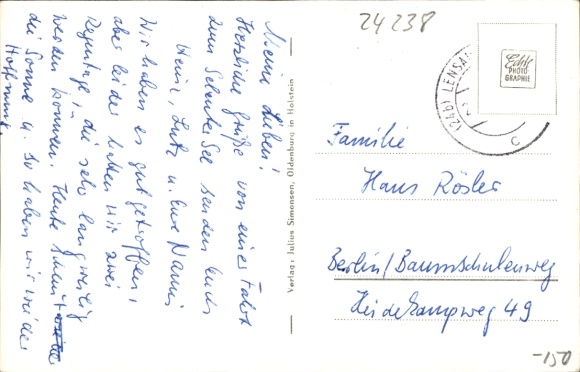 Meine Lieben!
Herzliche Grüße von einer Fahrt
zum Selenter See senden Euch
Heinz, Lutz u. Eure Nanni
Wir haben es gut getroffen,
aber leider hatten wir zwei
Regentage, die sehr langweilig
werden können. Heute scheint
die Sonne u. so haben wir wieder
Hoffnung.
Verlag: Julius Simonsen, Oldenburg in Holstein
24 238
(24b) LENSAHN
c
Echte
PHOTO
GRAPHIE
Familie
Hans Rösler
Berlin/Baumschulenweg
Heidekampweg 49
-150